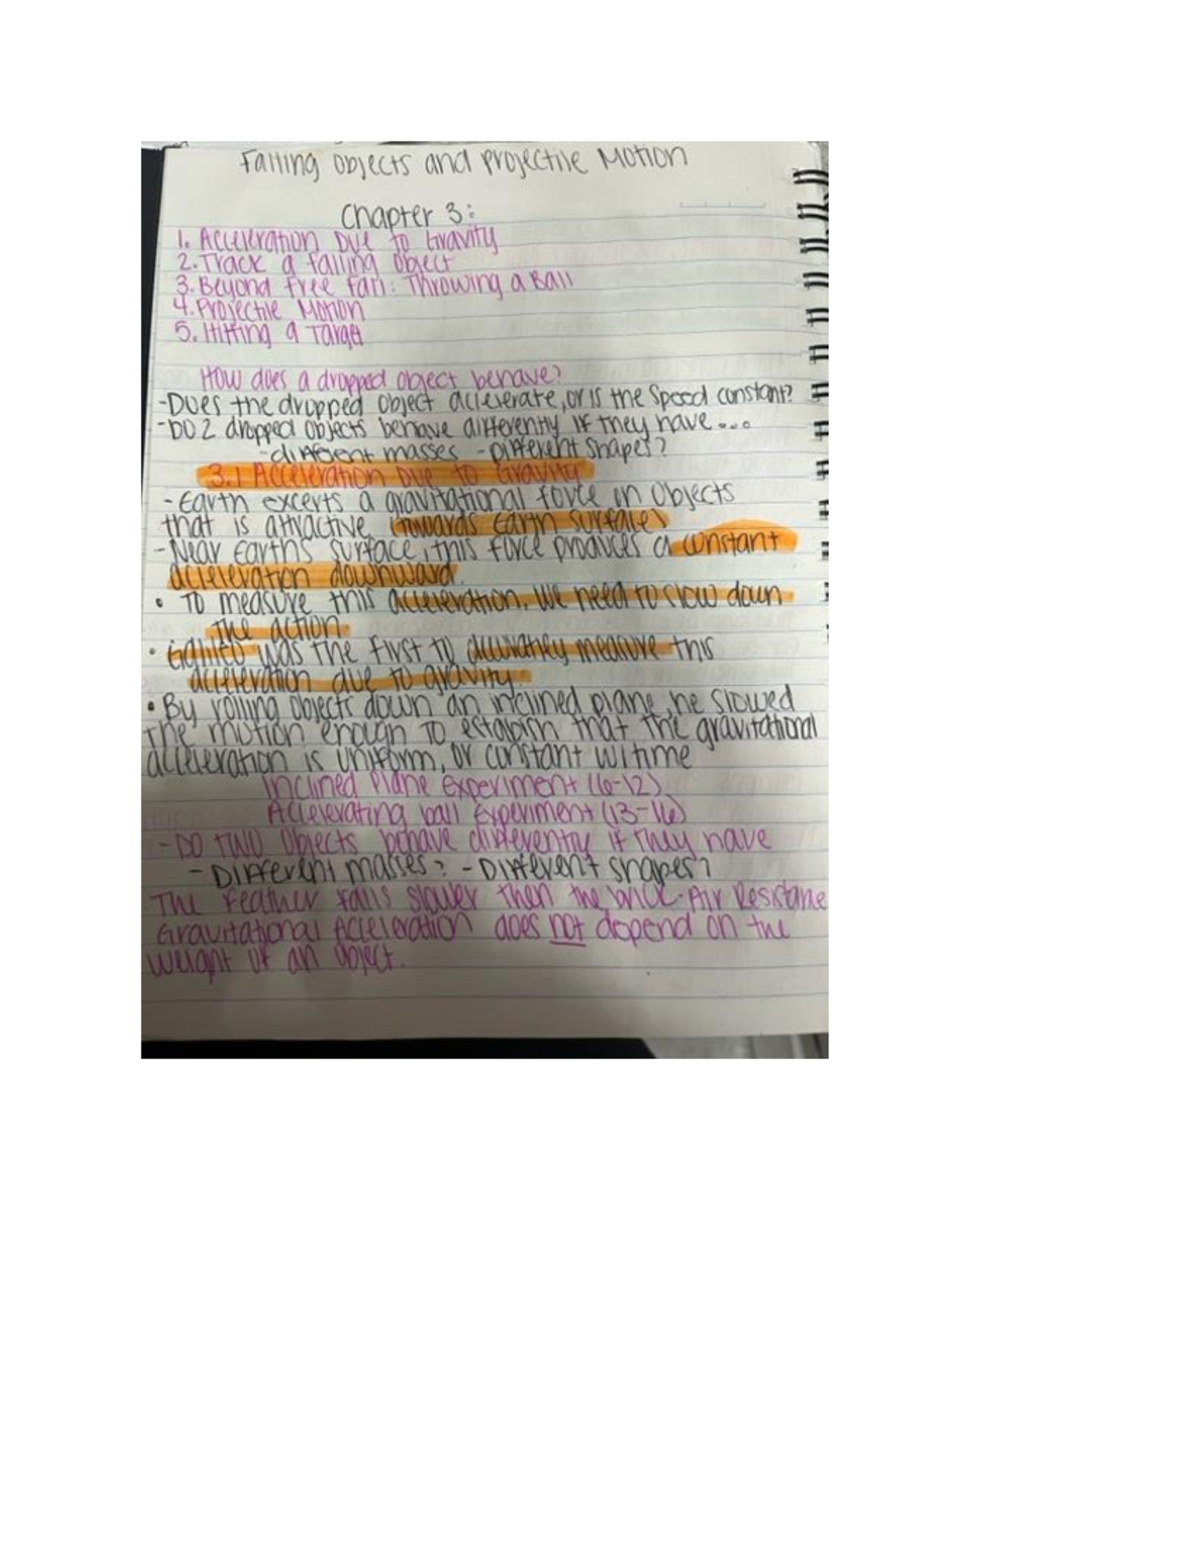 Falling Objects and Projectile Motion
Chapter 3:
1. Acceleration Due to Gravity
2. Track a falling Object
3. Beyond free fall: Throwing a Ball
4. Projectile Motion
5. Hitting a Target
How does a dropped object behave?
-Does the dropped object accelerate, or is the speed constant?
-DO 2 dropped objects behave differently if they have...
-different masses -Different shapes?
3.1 Acceleration Due to Gravity
-Earth excerts a gravitational force on Objects
that is attractive (towards Earth surface)
-Near Earth's surface, this force produces a constant
acceleration downward.
• To measure this acceleration, we need to slow down
the action
• Galileo was the first to accurately measure this
acceleration due to gravity.
• By rolling objects down an inclined plane, he slowed
the motion enough to establish that the gravitational
acceleration is uniform, or constant w/time
Inclined Plane Experiment (6-12)
Accelerating ball Experiment (13-16)
-DO TWO Objects behave differently if they have
-Different masses? -Different shapes?
The feather falls slower then the -Air Resistane
Gravitational Acceleration does not depend on the
weight of an object.